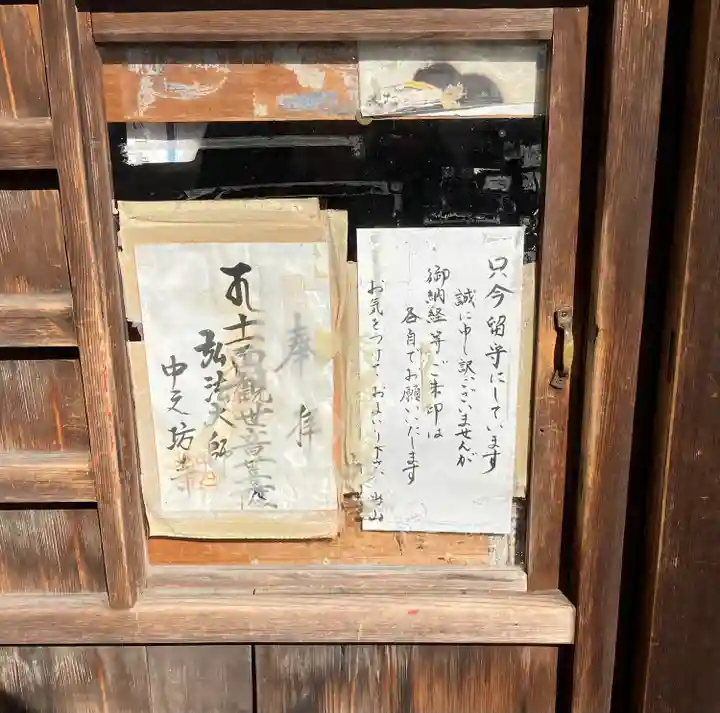 只今留守にしています
誠に申し訳ございませんが
御納経等ご朱印は
各自でお願いいたします
お気をつけておまいり下さい
奉拝
十一面観世音菩薩
弘法大師
中之坊